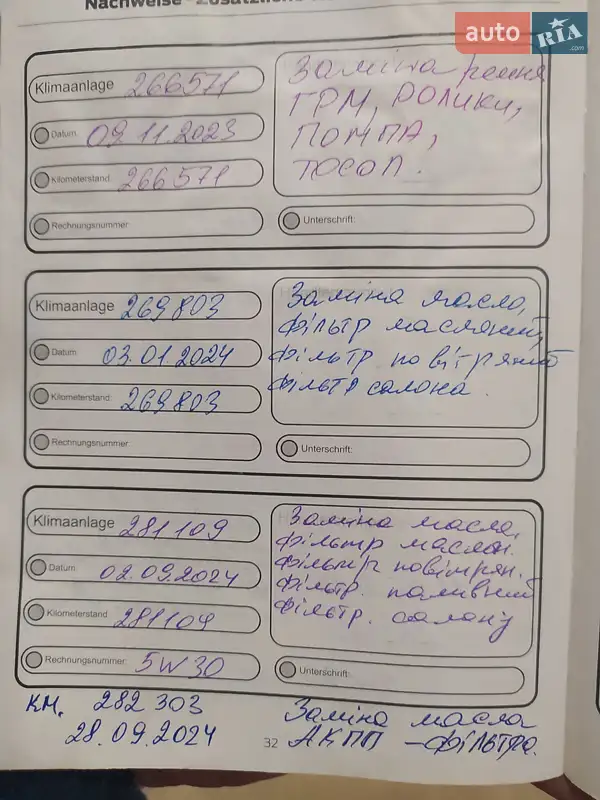 Nachweise
auto RIA .com
Klimaanlage 266571
Заміна ременя
ГРМ, РОЛИКИ,
ПОМПА,
ТОСОЛ.
Datum: 09.11.2023
Kilometerstand: 266571
Rechnungsnummer:
Unterschrift:
Klimaanlage 269803
Заміна масла,
фільтр масляний,
фільтр повітряний
фільтр салона
Datum: 03.01.2024
Kilometerstand: 269803
Rechnungsnummer:
Unterschrift:
Klimaanlage 281109
Заміна масла,
фільтр маслян.
фільтр повітрян.
фільтр. паливний
фільтр. салону
Datum: 02.09.2024
Kilometerstand: 281109
Rechnungsnummer: 5W30
Unterschrift:
км. 282 303
28.09.2024
Заміна масла
АКПП - фільтра.
32